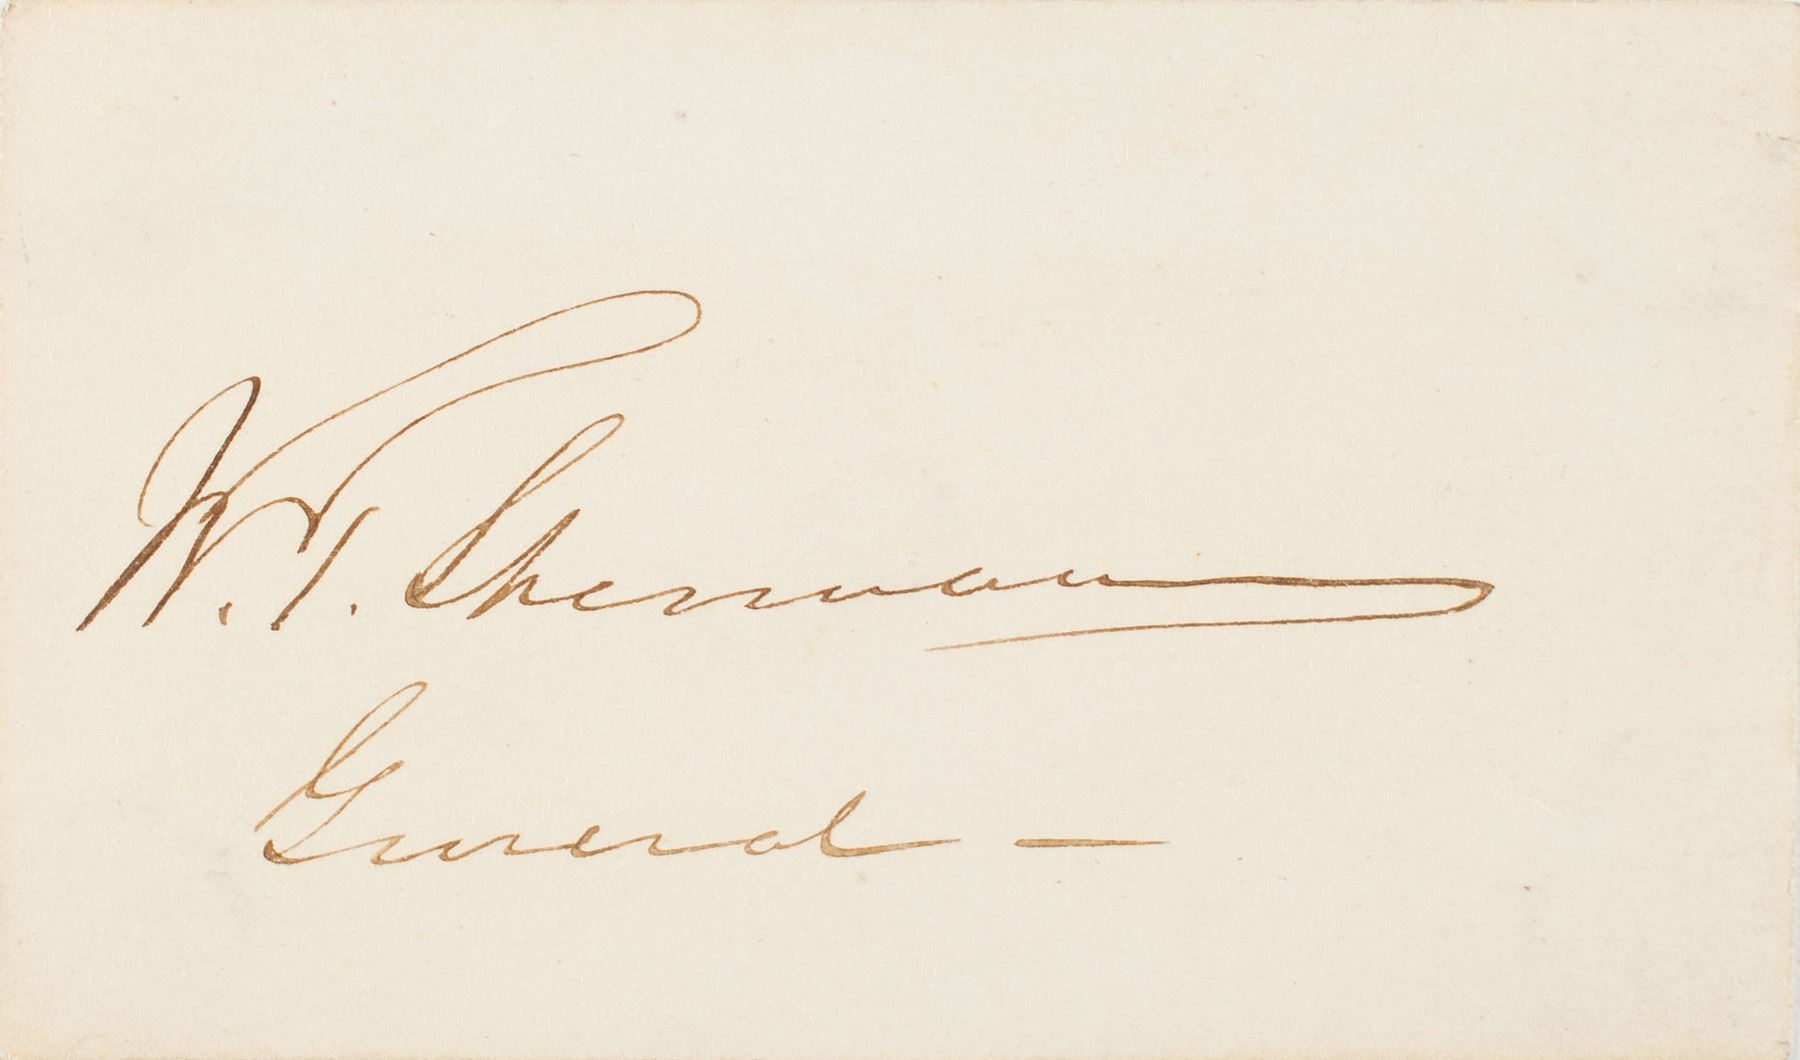 W. T. Sherman
General —